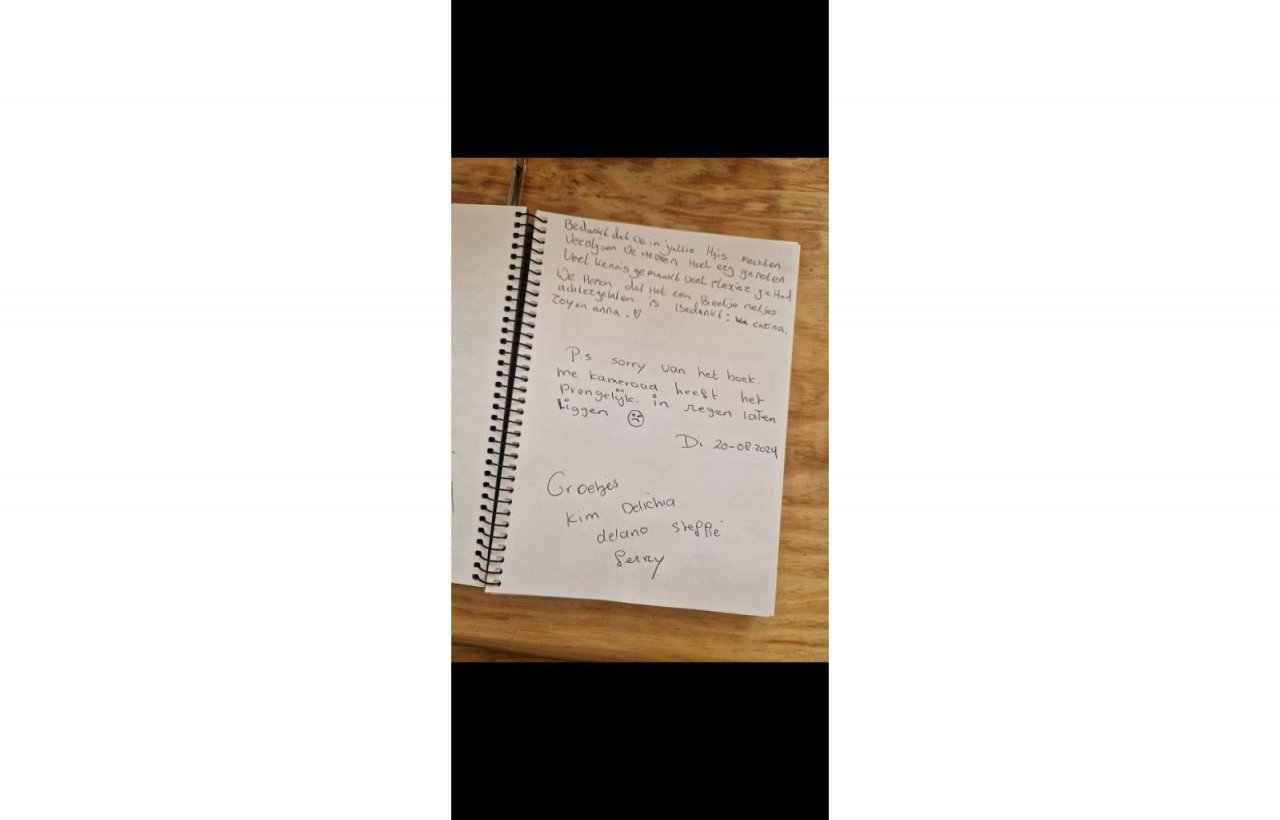 Bedankt dat we in jullie Hųis mochten
Verblijven We Hebben Heel erg genoten
Veel kennis gemaakt Veel Plezier gehad
We Hopen dat Het een Beetje netjes
achtergelaten is Bedankt: carina,
en anna. ♡
P.s sorry van het boek.
me kameraad heeft het
Prongelijk. in regen laten
Liggen ☹
Di 20-08-2024
Groetjes
Kim Delichia
delano Steffie
Gerry